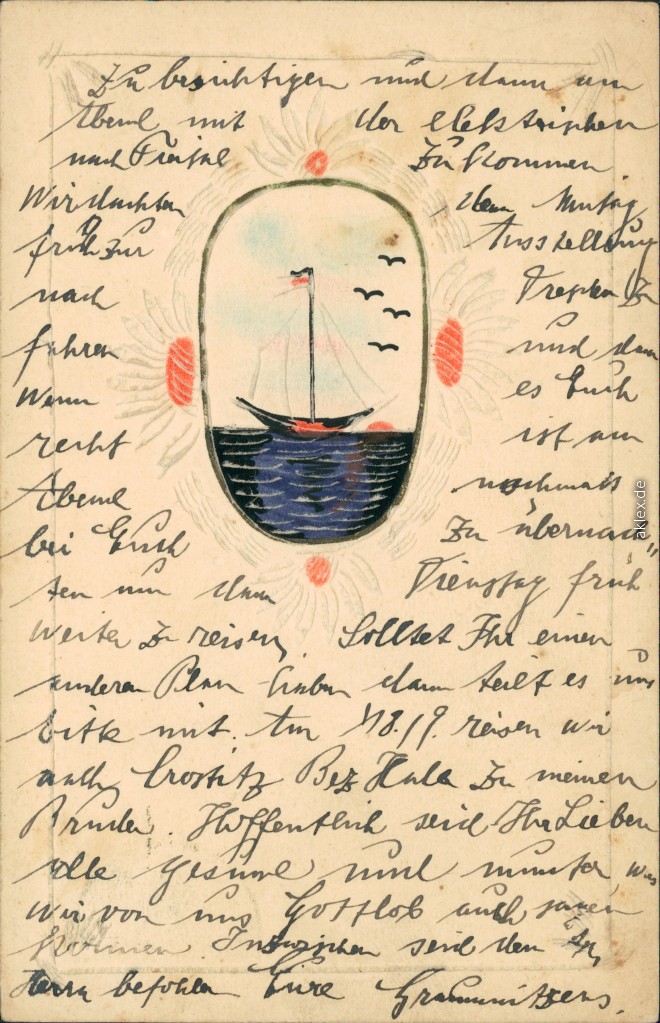 Zu besichtigen und dann am
Abend mit der elektrischen
nach zu kommen
Wir dachten dann Montag
früh zur Ausstellung
nach Dresden zu
fahren und dann
wenn es Euch
recht ist am
Abend nochmals
bei Euch zu übernach"
ten um dann Dienstag früh
weiter zu reisen, Solltet Ihr einen
anderen Plan haben dann teilt es uns
bitte mit. Am 18./9. reisen wir
nach Crostitz Bez Halle zu meinem
Bruder. Hoffentlich seid Ihr Lieben
alle gesund und munter was
wir von uns Gottlob auch sagen
können. Inzwischen seid dem
Herrn befohlen Eure
aklex.de